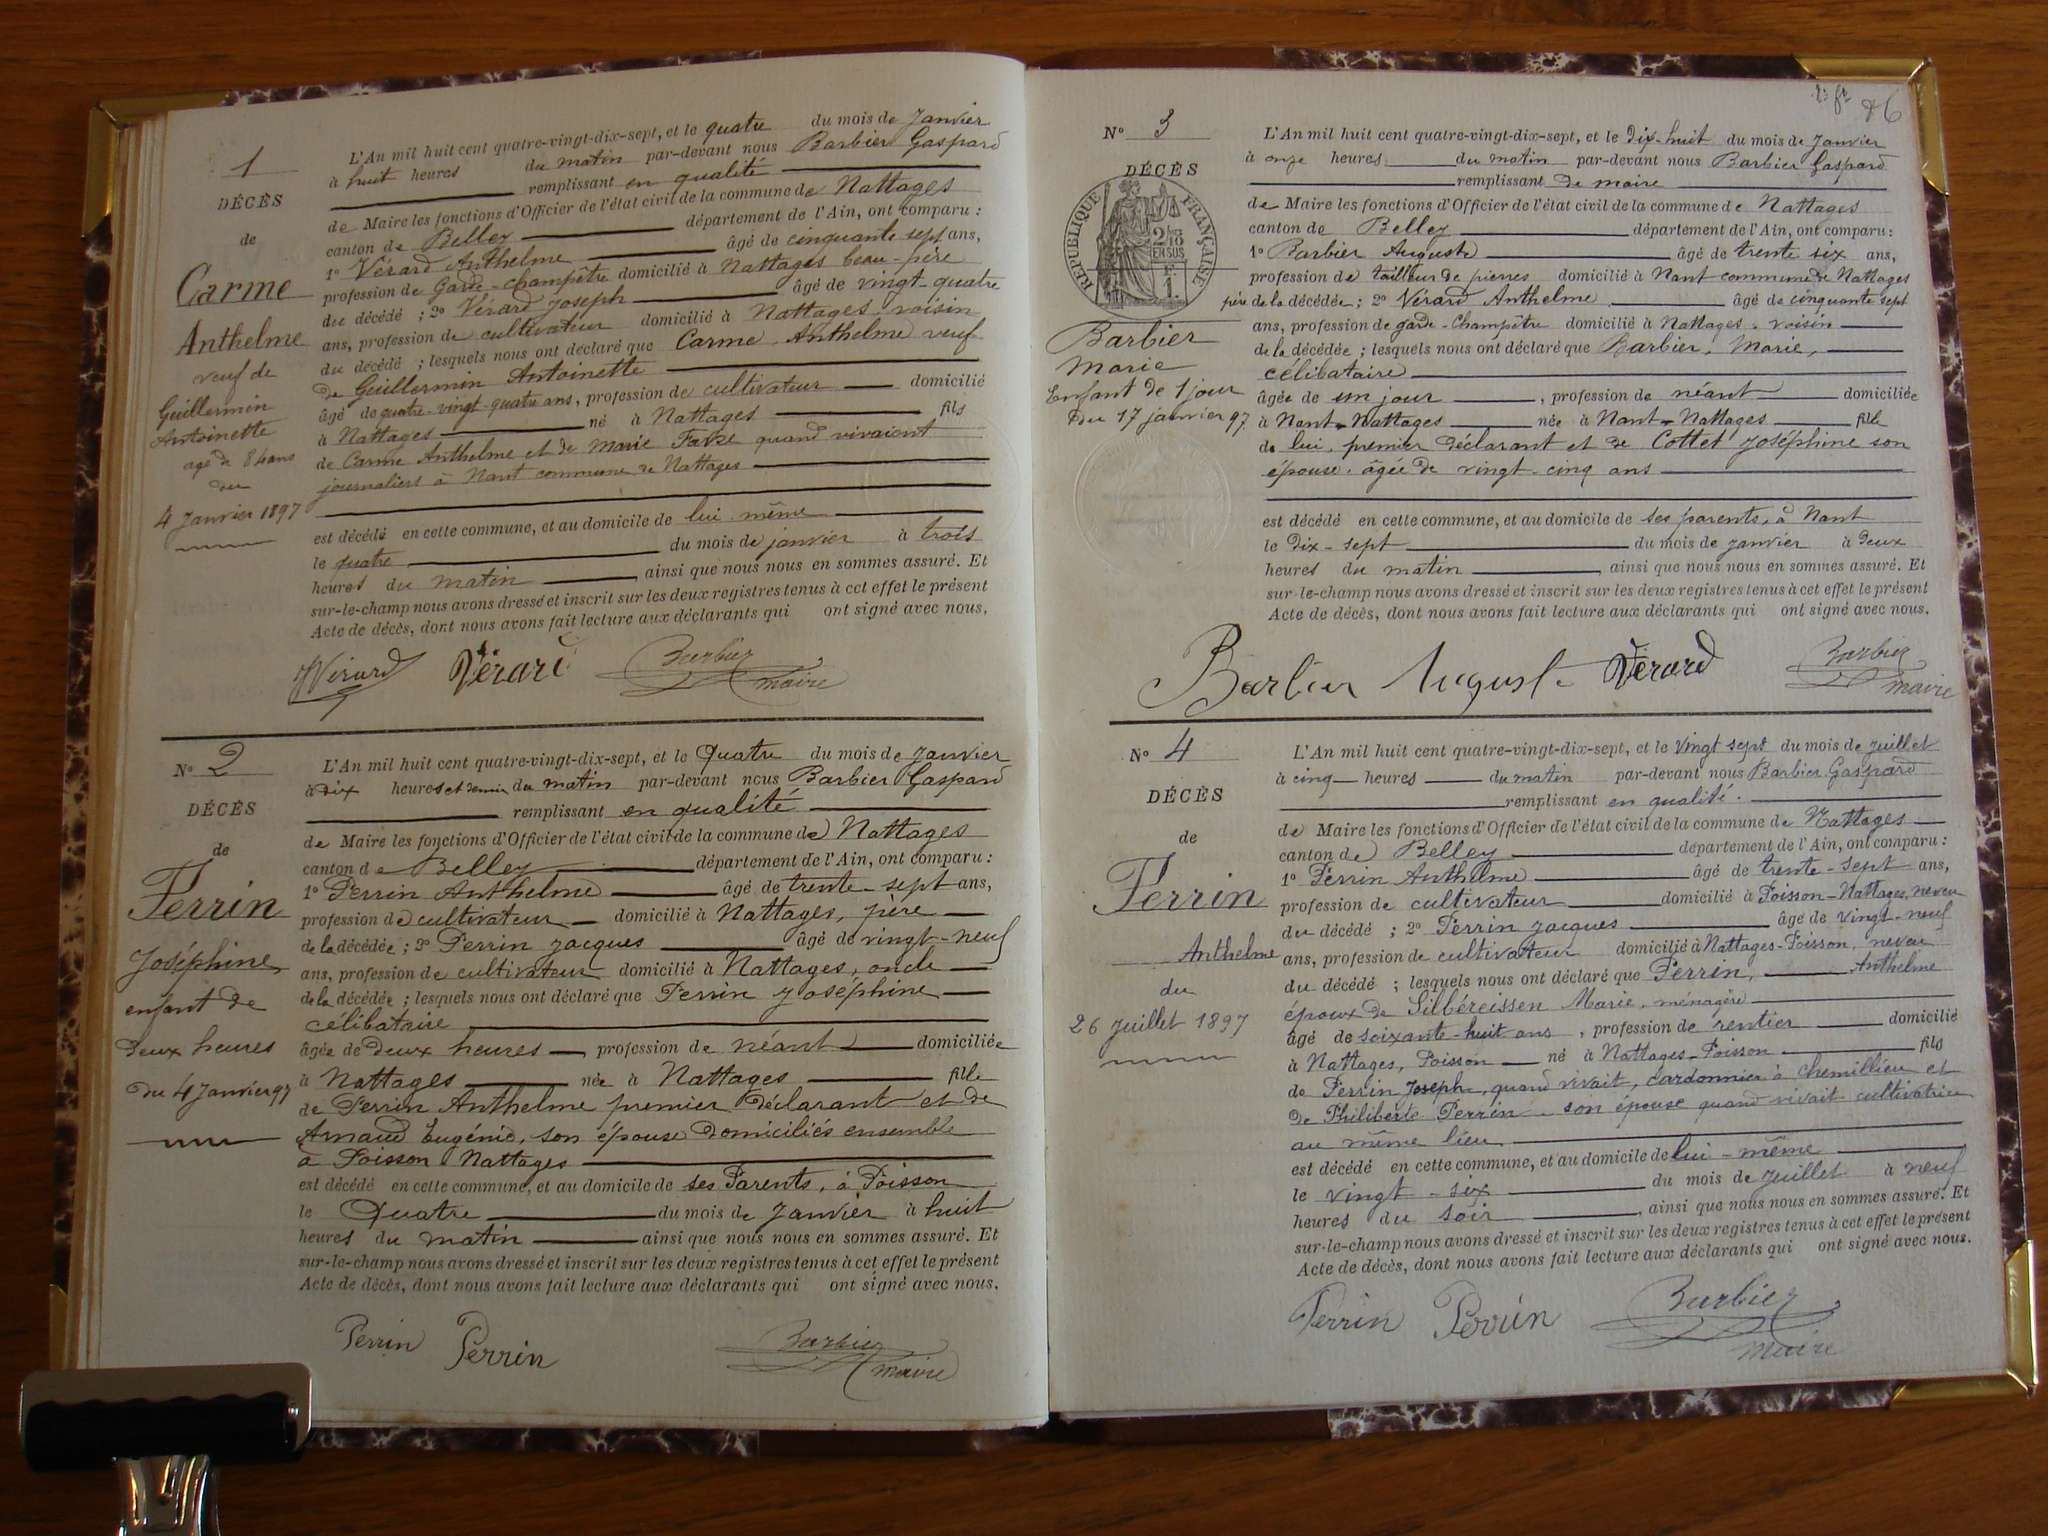 1
DÉCÈS
de
Carme
Anthelme
veuf de
Guillermin
Antoinette
agé de 84 ans
du
4 Janvier 1897
L'An mil huit cent quatre-vingt-dix-sept, et le quatre du mois de Janvier
à huit heures du matin par-devant nous Barbier Gaspard
remplissant en qualité
de Maire les fonctions d'Officier de l'état civil de la commune de Nattages
canton de Belley département de l'Ain, ont comparu :
1º Vérard Anthelme âgé de cinquante sept ans,
profession de Garde-champêtre domicilié à Nattages beau-père
du décédé ; 2º Vérard Joseph âgé de vingt quatre
ans, profession de cultivateur domicilié à Nattages. voisin
du décédé ; lesquels nous ont déclaré que Carme Anthelme veuf
de Guillermin Antoinette
âgé de quatre-vingt-quatre ans, profession de cultivateur domicilié
à Nattages né à Nattages fils
de Carme Anthelme et de Marie quand vivaient
journaliers à Nant commune de Nattages
est décédé en cette commune, et au domicile de lui même
le quatre du mois de janvier à trois
heures du matin, ainsi que nous nous en sommes assuré. Et
sur-le-champ nous avons dressé et inscrit sur les deux registres tenus à cet effet le présent
Acte de décès, dont nous avons fait lecture aux déclarants qui ont signé avec nous.
JVérard Vérard Barbier
maire
Nº 2
DÉCÈS
de
Perrin
Joséphine
enfant de
deux heures
du 4 Janvier 97
L'An mil huit cent quatre-vingt-dix-sept, et le Quatre du mois de Janvier
à dix heures et demie du matin par-devant nous Barbier Gaspard
remplissant en qualité
de Maire les fonctions d'Officier de l'état civil de la commune de Nattages
canton de Belley département de l'Ain, ont comparu :
1º Perrin Anthelme âgé de trente-sept ans,
profession de cultivateur domicilié à Nattages, père
de la décédée ; 2º Perrin Jacques âgé de vingt-neuf
ans, profession de cultivateur domicilié à Nattages, oncle
de la décédée ; lesquels nous ont déclaré que Perrin Joséphine
célibataire
âgée de deux heures, profession de néant domiciliée
à Nattages née à Nattages fille
de Perrin Anthelme premier déclarant et de
Arnaud Eugénie, son épouse domiciliés ensemble
à Poisson Nattages
est décédé en cette commune, et au domicile de ses Parents, à Poisson
le Quatre du mois de Janvier à huit
heures du matin ainsi que nous nous en sommes assuré. Et
sur-le-champ nous avons dressé et inscrit sur les deux registres tenus à cet effet le présent
Acte de décès, dont nous avons fait lecture aux déclarants qui ont signé avec nous.
Perrin Perrin Barbier
maire
26
Nº 3
DÉCÈS
RÉPUBLIQUE FRANÇAISE
2/10 EN SUS
Barbier
Marie
Enfant de 1 jour
du 17 janvier 97
L'An mil huit cent quatre-vingt-dix-sept, et le Dix-huit du mois de Janvier
à onze heures du matin par-devant nous Barbier Gaspard
remplissant de maire
de Maire les fonctions d'Officier de l'état civil de la commune de Nattages
canton de Belley département de l'Ain, ont comparu :
1º Barbier Auguste âgé de trente six ans,
profession de tailleur de pierres domicilié à Nant commune de Nattages
père de la décédée ; 2º Vérard Anthelme âgé de cinquante sept
ans, profession de garde-champêtre domicilié à Nattages. voisin
de la décédée ; lesquels nous ont déclaré que Barbier, Marie,
célibataire
âgée de un jour, profession de néant domiciliée
à Nant-Nattages née à Nant-Nattages fille
de lui, premier déclarant et de Cottet Joséphine son
épouse. âgée de vingt-cinq ans
est décédé en cette commune, et au domicile de ses parents, à Nant
le dix-sept du mois de janvier à deux
heures du matin, ainsi que nous nous en sommes assuré. Et
sur-le-champ nous avons dressé et inscrit sur les deux registres tenus à cet effet le présent
Acte de décès, dont nous avons fait lecture aux déclarants qui ont signé avec nous.
Barbier Auguste Vérard Barbier
maire
Nº 4
DÉCÈS
de
Perrin
Anthelme
du
26 Juillet 1897
L'An mil huit cent quatre-vingt-dix-sept, et le Vingt sept du mois de Juillet
à cinq heures du matin par-devant nous Barbier Gaspard
remplissant en qualité.
de Maire les fonctions d'Officier de l'état civil de la commune de Nattages
canton de Belley département de l'Ain, ont comparu :
1º Perrin Anthelme âgé de trente-sept ans,
profession de cultivateur domicilié à Poisson-Nattages, neveu
du décédé ; 2º Perrin Jacques âgé de vingt-neuf
ans, profession de cultivateur domicilié à Nattages-Poisson, neveu
du décédé ; lesquels nous ont déclaré que Perrin, Anthelme
époux de Silbéreissen Marie, ménagère
âgé de soixante-huit ans, profession de rentier domicilié
à Nattages, Poisson né à Nattages-Poisson fils
de Perrin Joseph, quand vivait, cordonnier à Chemillieu et
de Philiberte Perrin son épouse quand vivait cultivatrice
au même lieu
est décédé en cette commune, et au domicile de lui-même
le vingt-six du mois de Juillet à neuf
heures du soir, ainsi que nous nous en sommes assuré. Et
sur-le-champ nous avons dressé et inscrit sur les deux registres tenus à cet effet le présent
Acte de décès, dont nous avons fait lecture aux déclarants qui ont signé avec nous.
Perrin Perrin Barbier
maire